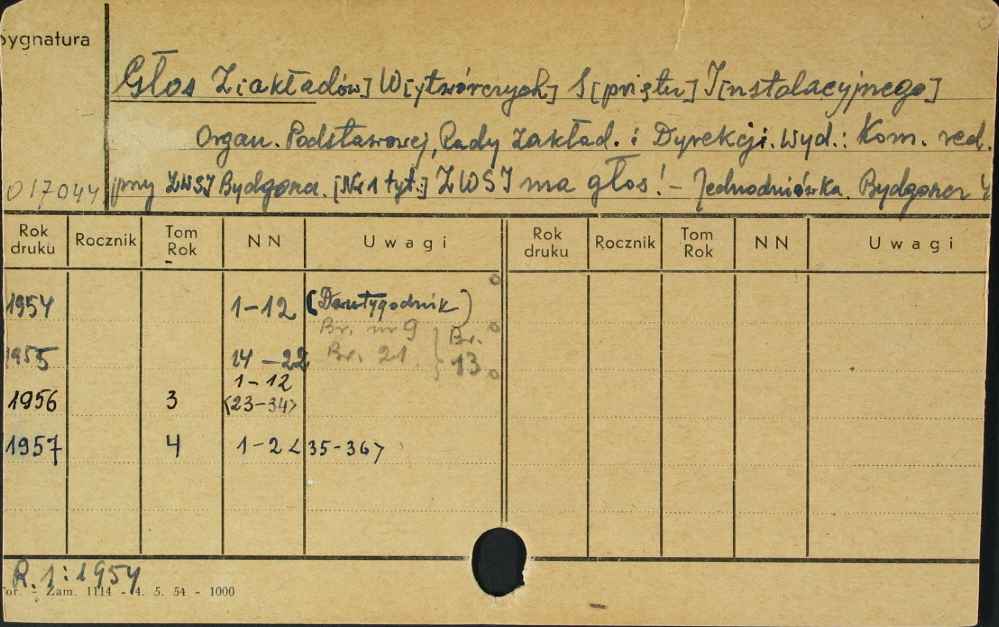 Sygnatura
Głos Z[akładów] W[ytwórczych] S[przętu] I[nstalacyjnego]
Organ. Podstawowej, Rady Zakład. i Dyrekcji. Wyd.: Kom. red.
017044 przy ZWSI Bydgoszcz. [Nr 1 tyt:] ZWSI ma głos! - Jednodniówka. Bydgoszcz
Rok druku Rocznik Tom Rok NN Uwagi Rok druku Rocznik Tom Rok NN Uwagi
1954 1-12 (Dwutygodnik)
Br. nr 9 } Br. 13
1955 14-22 Br. 21
1956 3 1-12 <23-34>
1957 4 1-2 <35-36>
R. 1: 1954
Zam. 1114 - 4. 5. 54 - 1000